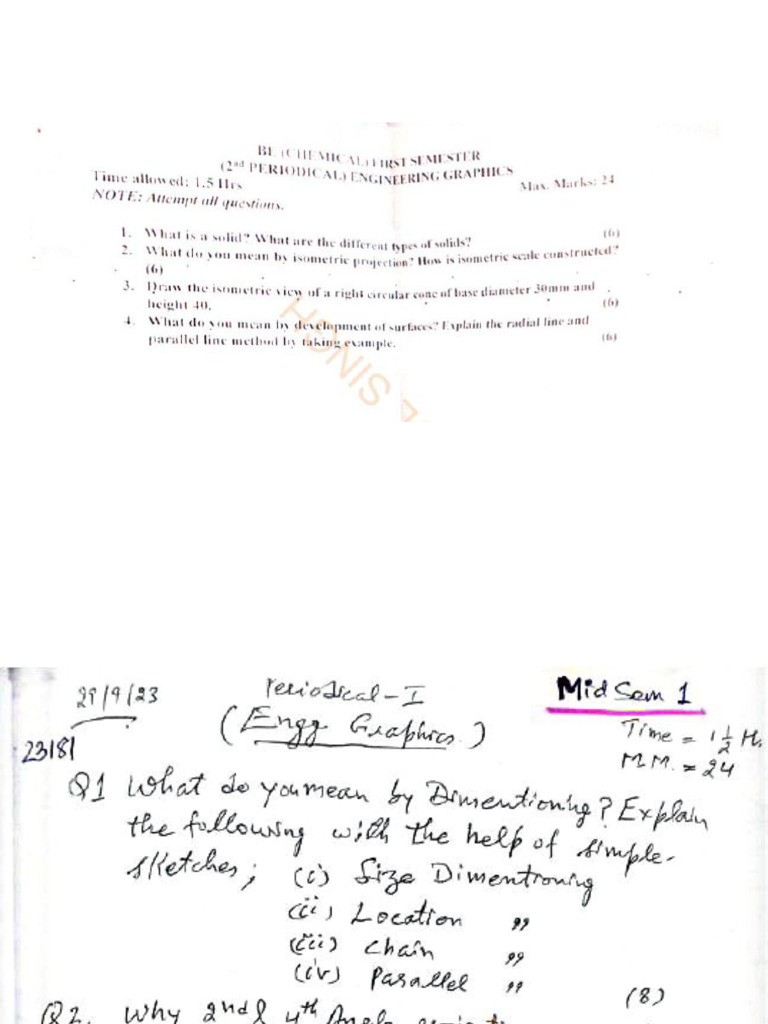 BE (CHEMICAL) FIRST SEMESTER
(2nd PERIODICAL) ENGINEERING GRAPHICS
Time allowed: 1.5 Hrs
Max. Marks: 24
NOTE: Attempt all questions.
1. What is a solid? What are the different types of solids? (6)
2. What do you mean by isometric projection? How is isometric scale constructed?
(6)
3. Draw the isometric view of a right circular cone of base diameter 30mm and
height 40. (6)
4. What do you mean by development of surfaces? Explain the radial line and
parallel line method by taking example. (6)
SINGH
29/9/23
Periodical-I
Mid Sem 1
(Engg Graphics)
Time = 1 1/2 H.
23181
M.M. = 24
Q1 What do you mean by Dimentioning? Explain
the following with the help of simple-
sketches; (i) Size Dimentioning
(ii) Location "
(iii) Chain "
(iv) Parallel "
(8)
Q2. Why 2nd & 4th Angle